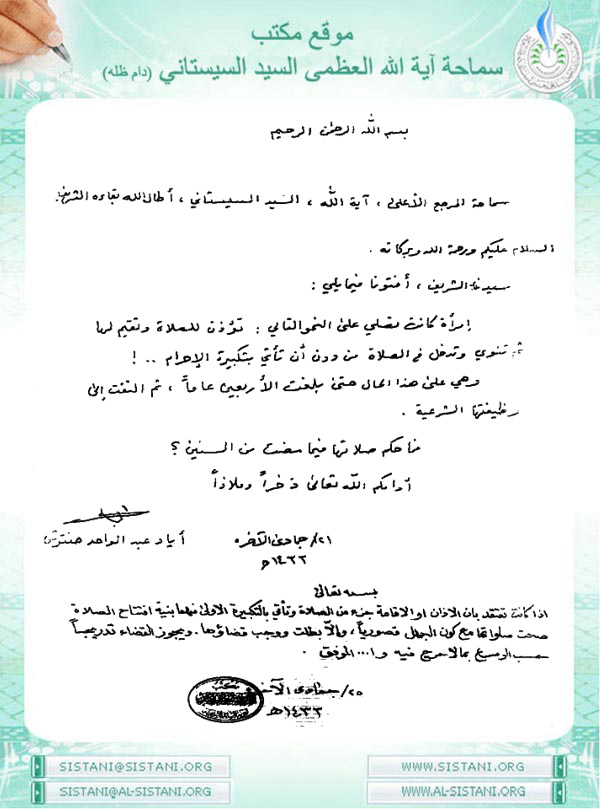 موقع مكتب
سماحة آية الله العظمى السيد السيستاني (دام ظله)
بسم الله الرحمن الرحيم
سماحة المرجع الأعلى، آية الله، السيد السيستاني، أطال الله بقاءه الشريف.
السلام عليكم ورحمة الله وبركاته.
سيدنا الشريف، أفتونا فيما يلي:
إمرأة كانت تصلي على النحو التالي: تؤذن للصلاة وتقيم لها
ثم تنوي وتدخل في الصلاة من دون أن تأتي بتكبيرة الإحرام ..!
وهي على هذا الحال حتى بلغت الأربعين عاماً، ثم التفتت إلى
وظيفتها الشرعية.
فما حكم صلاتها فيما مضت من السنين؟
أدامكم الله تعالى ذخراً وملاذاً
أياد عبد الواحد
٢١/جمادى الآخره
١٤٣٣ه
بسمه تعالى
اذا كانت تعتقد بان الاذان او الاقامة جزء من الصلاة وتأتي بالتكبيرة الاولى منهما بنية افتتاح الصلاة
صحت صلواتها مع كون الجهل قصورياً، والاّ بطلت ووجب قضاؤها. ويجوز القضاء تدريجياً
حسب الوسع بما لا حرج فيه و ا... الموفق.
٢٥/جمادى الآخره
١٤٣٣ه
مكتب
SISTANI@SISTANI.ORG
WWW.SISTANI.ORG
SISTANI@AL-SISTANI.ORG
WWW.AL-SISTANI.ORG